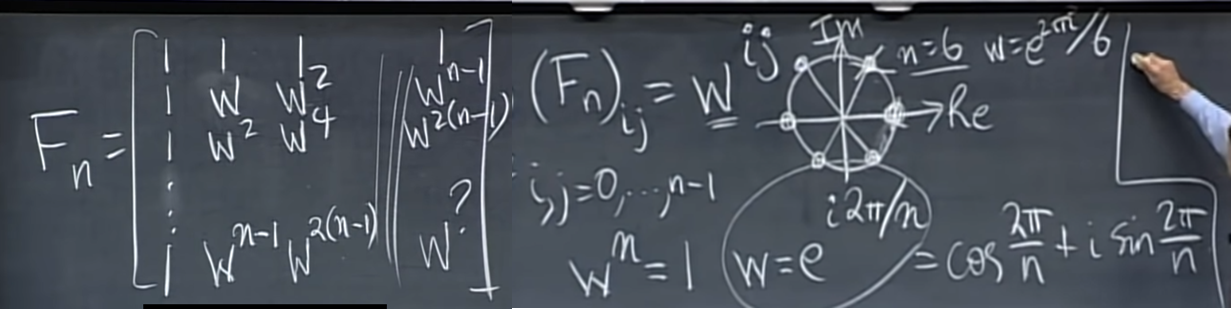 1 1 1 1
1 W W² Wⁿ⁻¹
Fₙ = 1 W² W⁴ W²⁽ⁿ⁻¹⁾
⋮
1 Wⁿ⁻¹ W²⁽ⁿ⁻¹⁾ W^?
(Fₙ)ᵢⱼ = W^ij
Im
n=6 w=e^2πi/6
Re
i,j=0,...,n-1
Wⁿ=1 W=e^i2π/n = cos 2π/n + i sin 2π/n